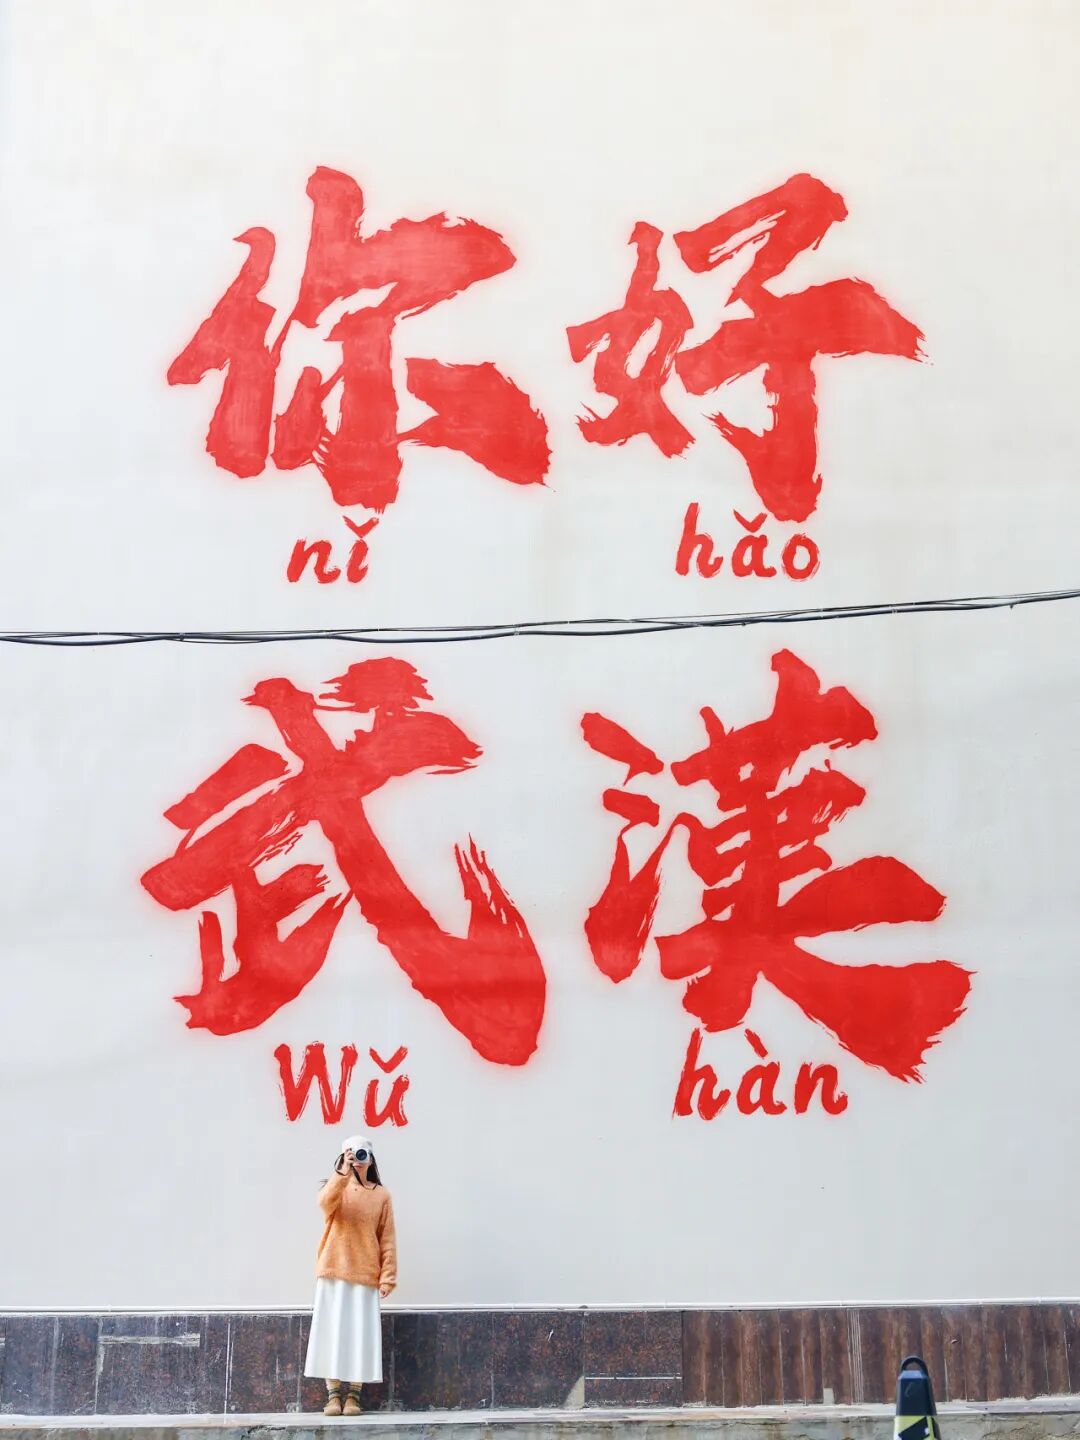 你好
nǐ hǎo
武漢
Wǔ hàn